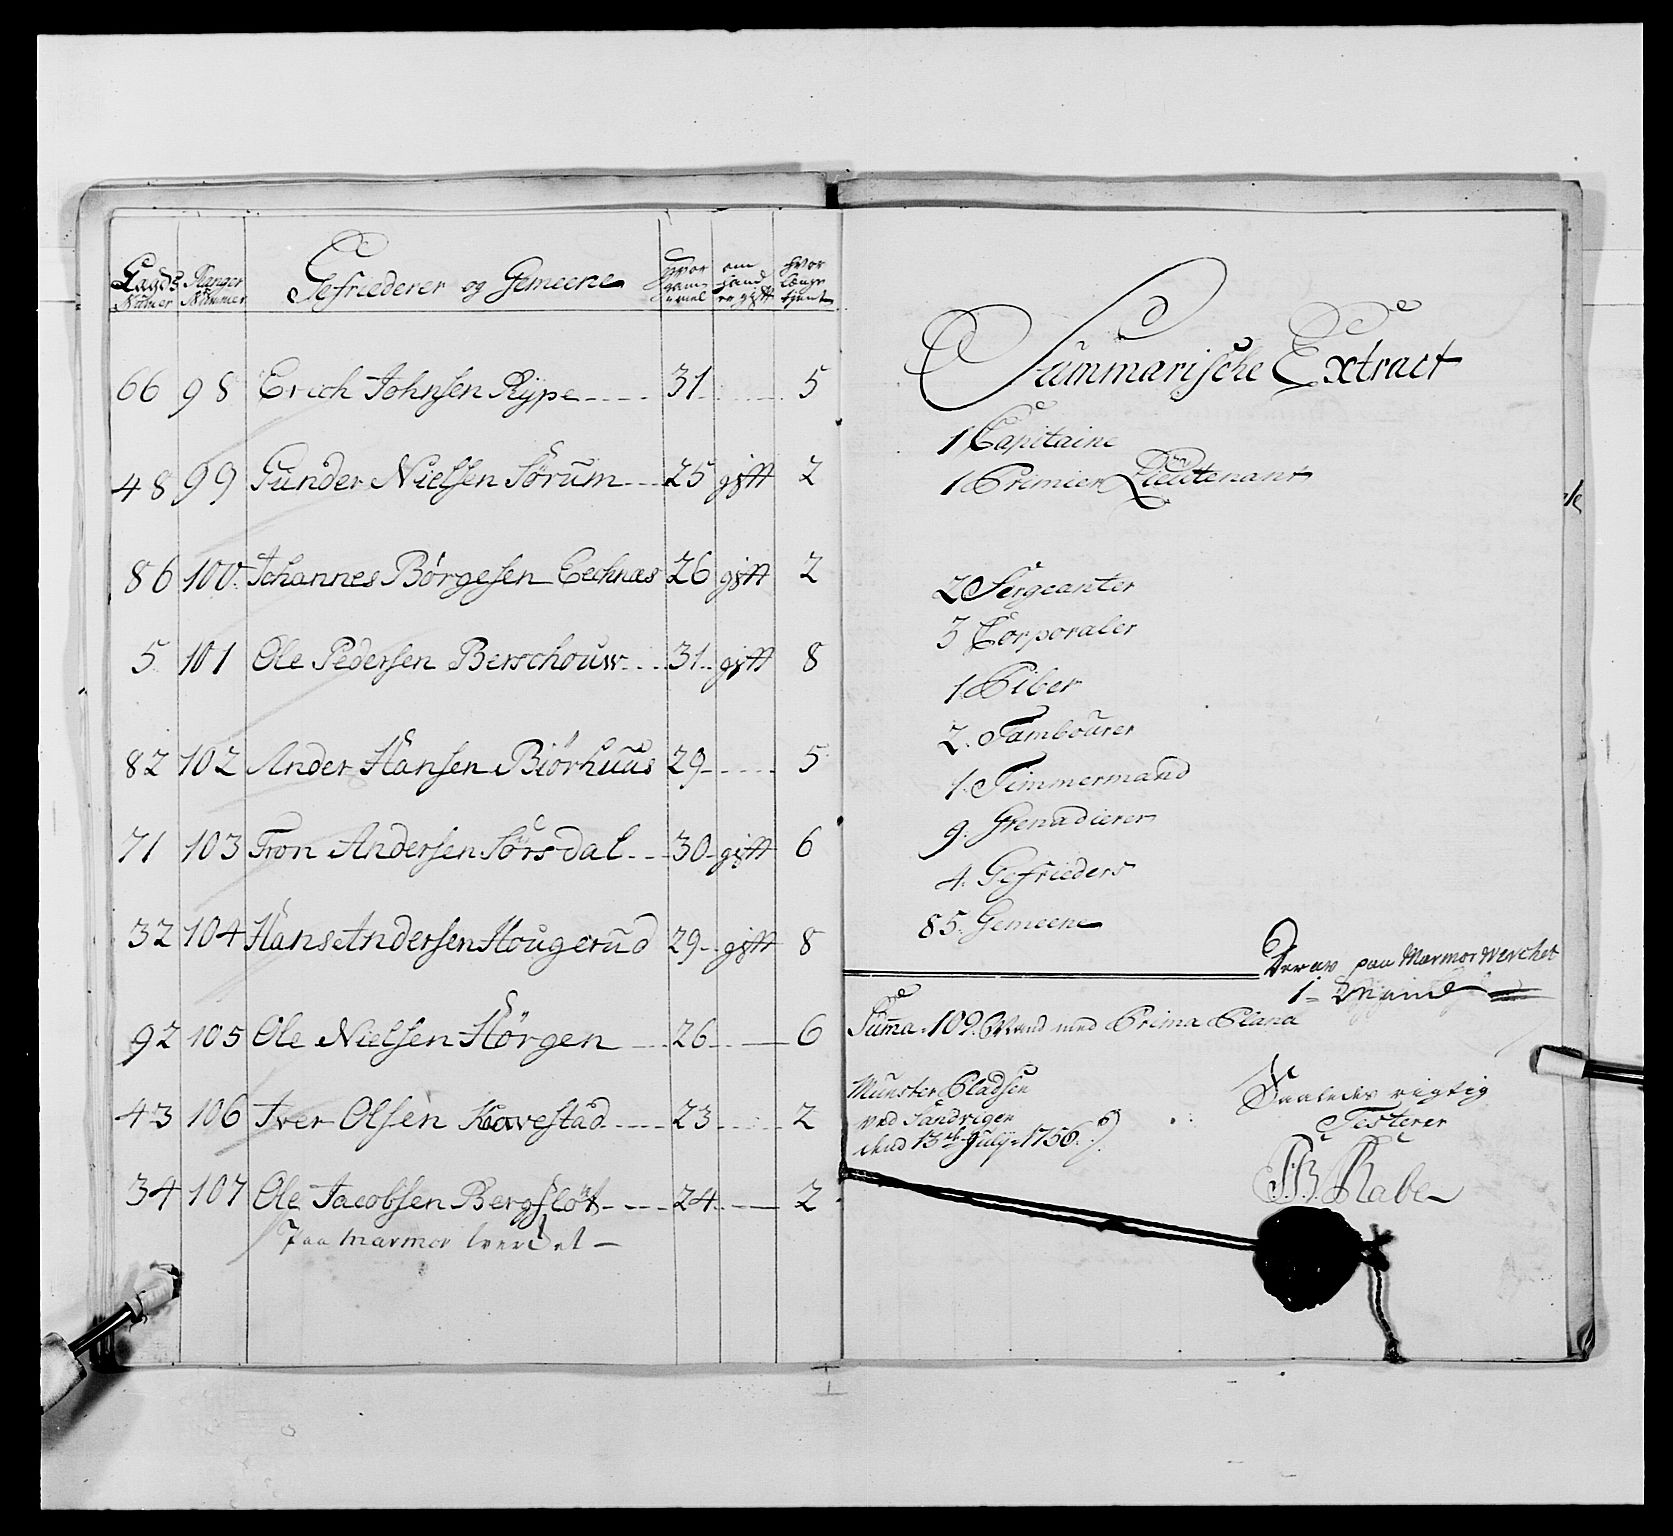 Lægds Numer | Ranger Nummer | Gefriederer og Gemeene | hvor gam- mel | om hand er gift | hvor længe tjent
66 98 Erich Johnsen Rÿpe 31 5
48 99 Gunder Nielsen Sørum 25 gift 2
86 100 Johannes Børgesen Eechnæs 26 gift 2
5 101 Ole Pedersen Berschouw 31 gift 8
82 102 Ander Hansen Biörhuus 29 5
71 103 Tron Andersen Sörsdal 30 gift 6
32 104 Hans Andersen Hougerud 29 gift 8
92 105 Ole Nielsen Hörgen 26 6
43 106 Iver Olsen Kavestad 23 2
34 107 Ole Jacobsen Bergfløt 24 2
Paa Marmor Verchet
Summarische Extract
1 Capitaine
1 Primier Lieutenant
2 Sergeanter
3 Corporaler
1. Piber
2. Tambourer
1. Timmermand
9. Grenadierer
4. Gefrieders
85. Gemeene
Derav paa Marmor Verchet
1 = Mand
Summa. 109. Mand med Prima Plana
Munster Pladsen
ved Sandvigen
dend 13de July 1756.
Saaledes rigtig
Testerer
J.B. Rabe